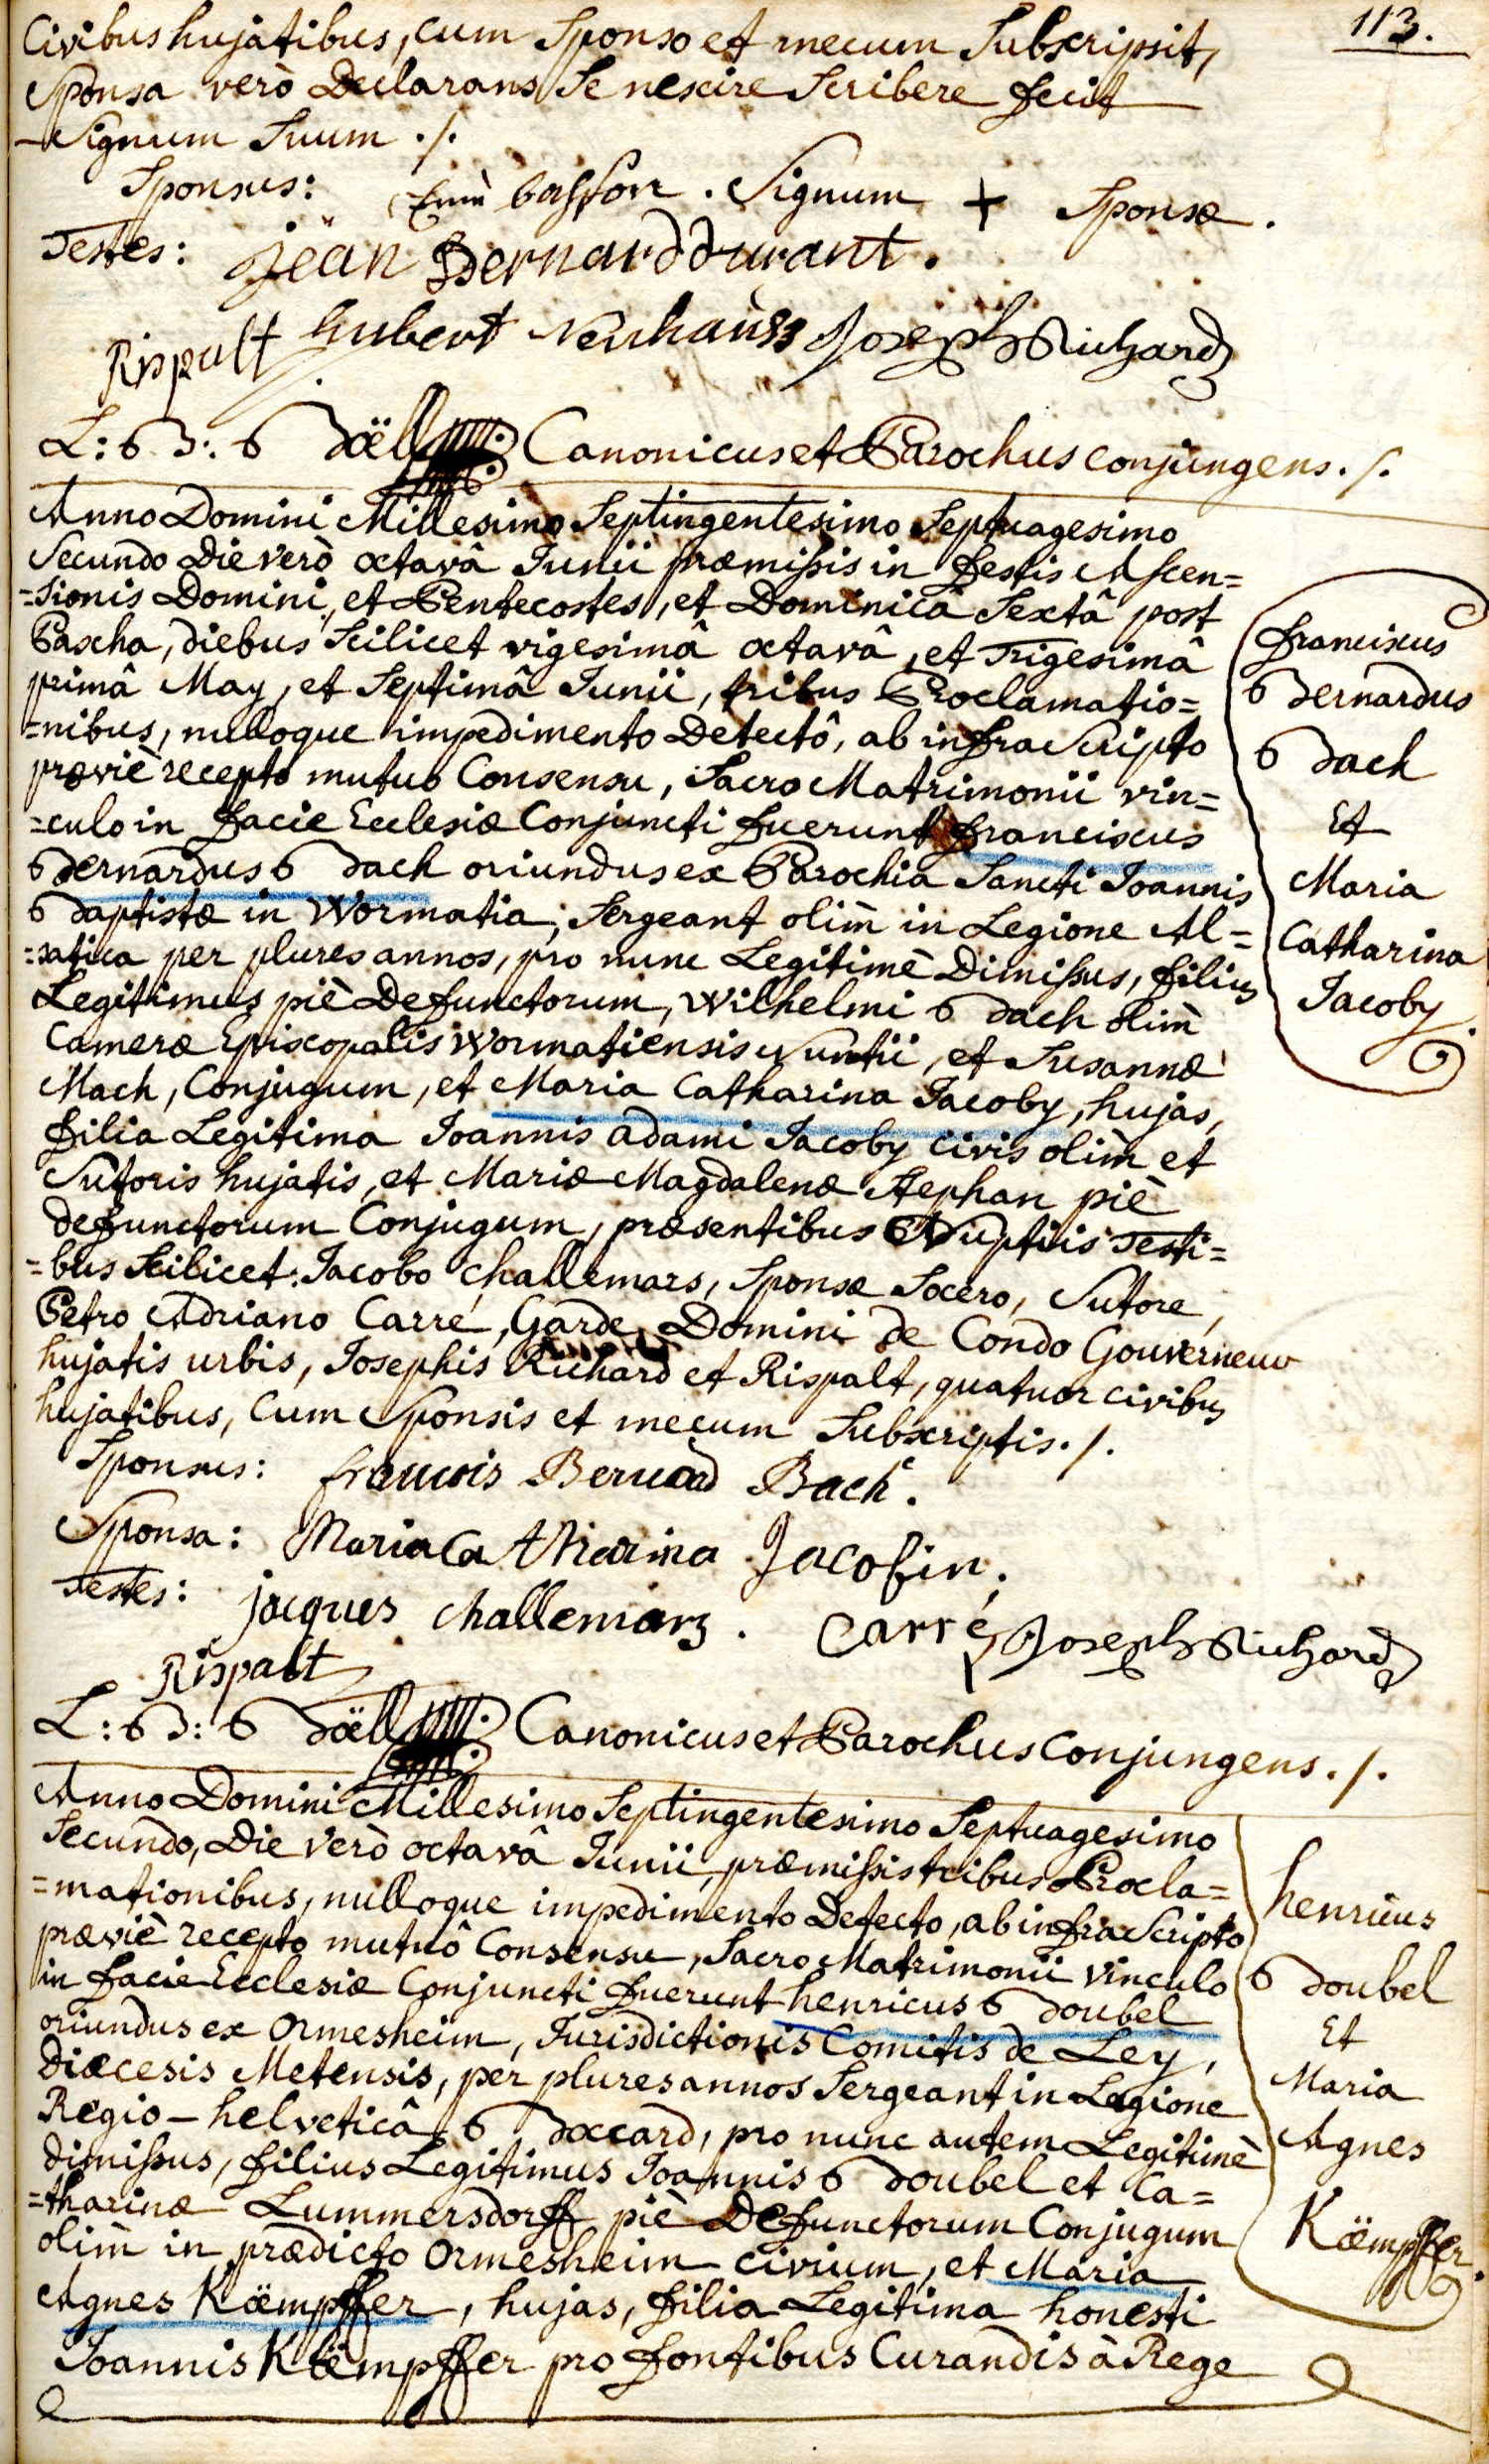 113.
Civibus hujatibus, cum Sponso et mecum Subscripsit,
Sponsa verò Declarans Se nescire Scribere fecit
Signum Suum ./.
Sponsus: Signum + Sponsæ.
Testes: jean Bernard durant.
Rispalt hubert Neuhauss Joseph Richard
L: B: Bäell Canonicus et Parochus conjungens ./.
Anno Domini Millesimo Septingentesimo Septuagesimo
Secundo Die verò octavâ Junii præmissis in festis Ascen=
=sionis Domini, et Pentecostes, et Dominicâ Sextâ post
Pascha, diebus Scilicet vigesimâ octavâ, et Trigesimâ
primâ May, et Septimâ Junii, tribus Proclamatio=
=nibus, nulloque impedimento Detectô, ab infra Scripto
præviè recepto mutuo Consensu, Sacro Matrimonii vin=
=culo in facie Ecclesiæ Conjuncti fuerunt franciscus
Bernardus Bach oriundus ex Parochia Sancti Joannis
Baptistæ in Wormatia, Sergeant olim in Legione Al=
=satica per plures annos, pro nunc Legitimè Dimissus, filius
Legitimus piè Defunctorum, Wilhelmi Bach olim
Cameræ Episcopalis Wormatiensis Nuntii, et Susannæ
Mach, Conjugum, et Maria Catharina Jacoby, hujas,
filia Legitima Joannis adami Jacoby civis olim et
Sutoris hujatis, et Mariæ Magdalenæ Stephan piè
defunctorum Conjugum, præsentibus Nuptiis Testi=
=bus Scilicet: Jacobo challemars, Sponsæ Socero, Sutore,
Petro Adriano Carré, Garde Domini de Condo Gouverneur
hujatis urbis, Josephis Richard et Rispalt, quatuor civibus
hujatibus, Cum Sponsis et mecum Subscriptis ./.
franciscus
Bernardus
Bach
Et
Maria
Catharina
Jacoby.
Sponsus: francois Bernard Bach.
Sponsa: Maria Catharina Jacobin.
Testes: jacques challemarz. Carré Joseph Richard
Rispalt
L: B: Bäell Canonicus et Parochus conjungens ./.
Anno Domini Millesimo Septingentesimo Septuagesimo
Secundo, Die verò octavâ Junii, præmissis tribus Procla=
=mationibus, nulloque impedimento Detecto, ab infra Scripto
præviè recepto mutuô Consensu, Sacro Matrimonii vinculo
in facie Ecclesiæ Conjuncti fuerunt henricus Boubel
oriundus ex Ormesheim, Jurisdictionis Comitis de Ley,
Diæcesis Metensis, per plures annos Sergeant in Legione
Regio-helveticâ Boccard, pro nunc autem Legitimè
dimissus, filius Legitimus Joannis Boubel et Ca=
=tharinæ Lummersdorff piè Defunctorum Conjugum
olim in prædicto Ormesheim civium, et Maria
Agnes Käempffer, hujas, filia Legitima honesti
Joannis Käempffer pro fontibus Curandis à Rege
henricus
Boubel
Et
Maria
Agnes
Käempffer.